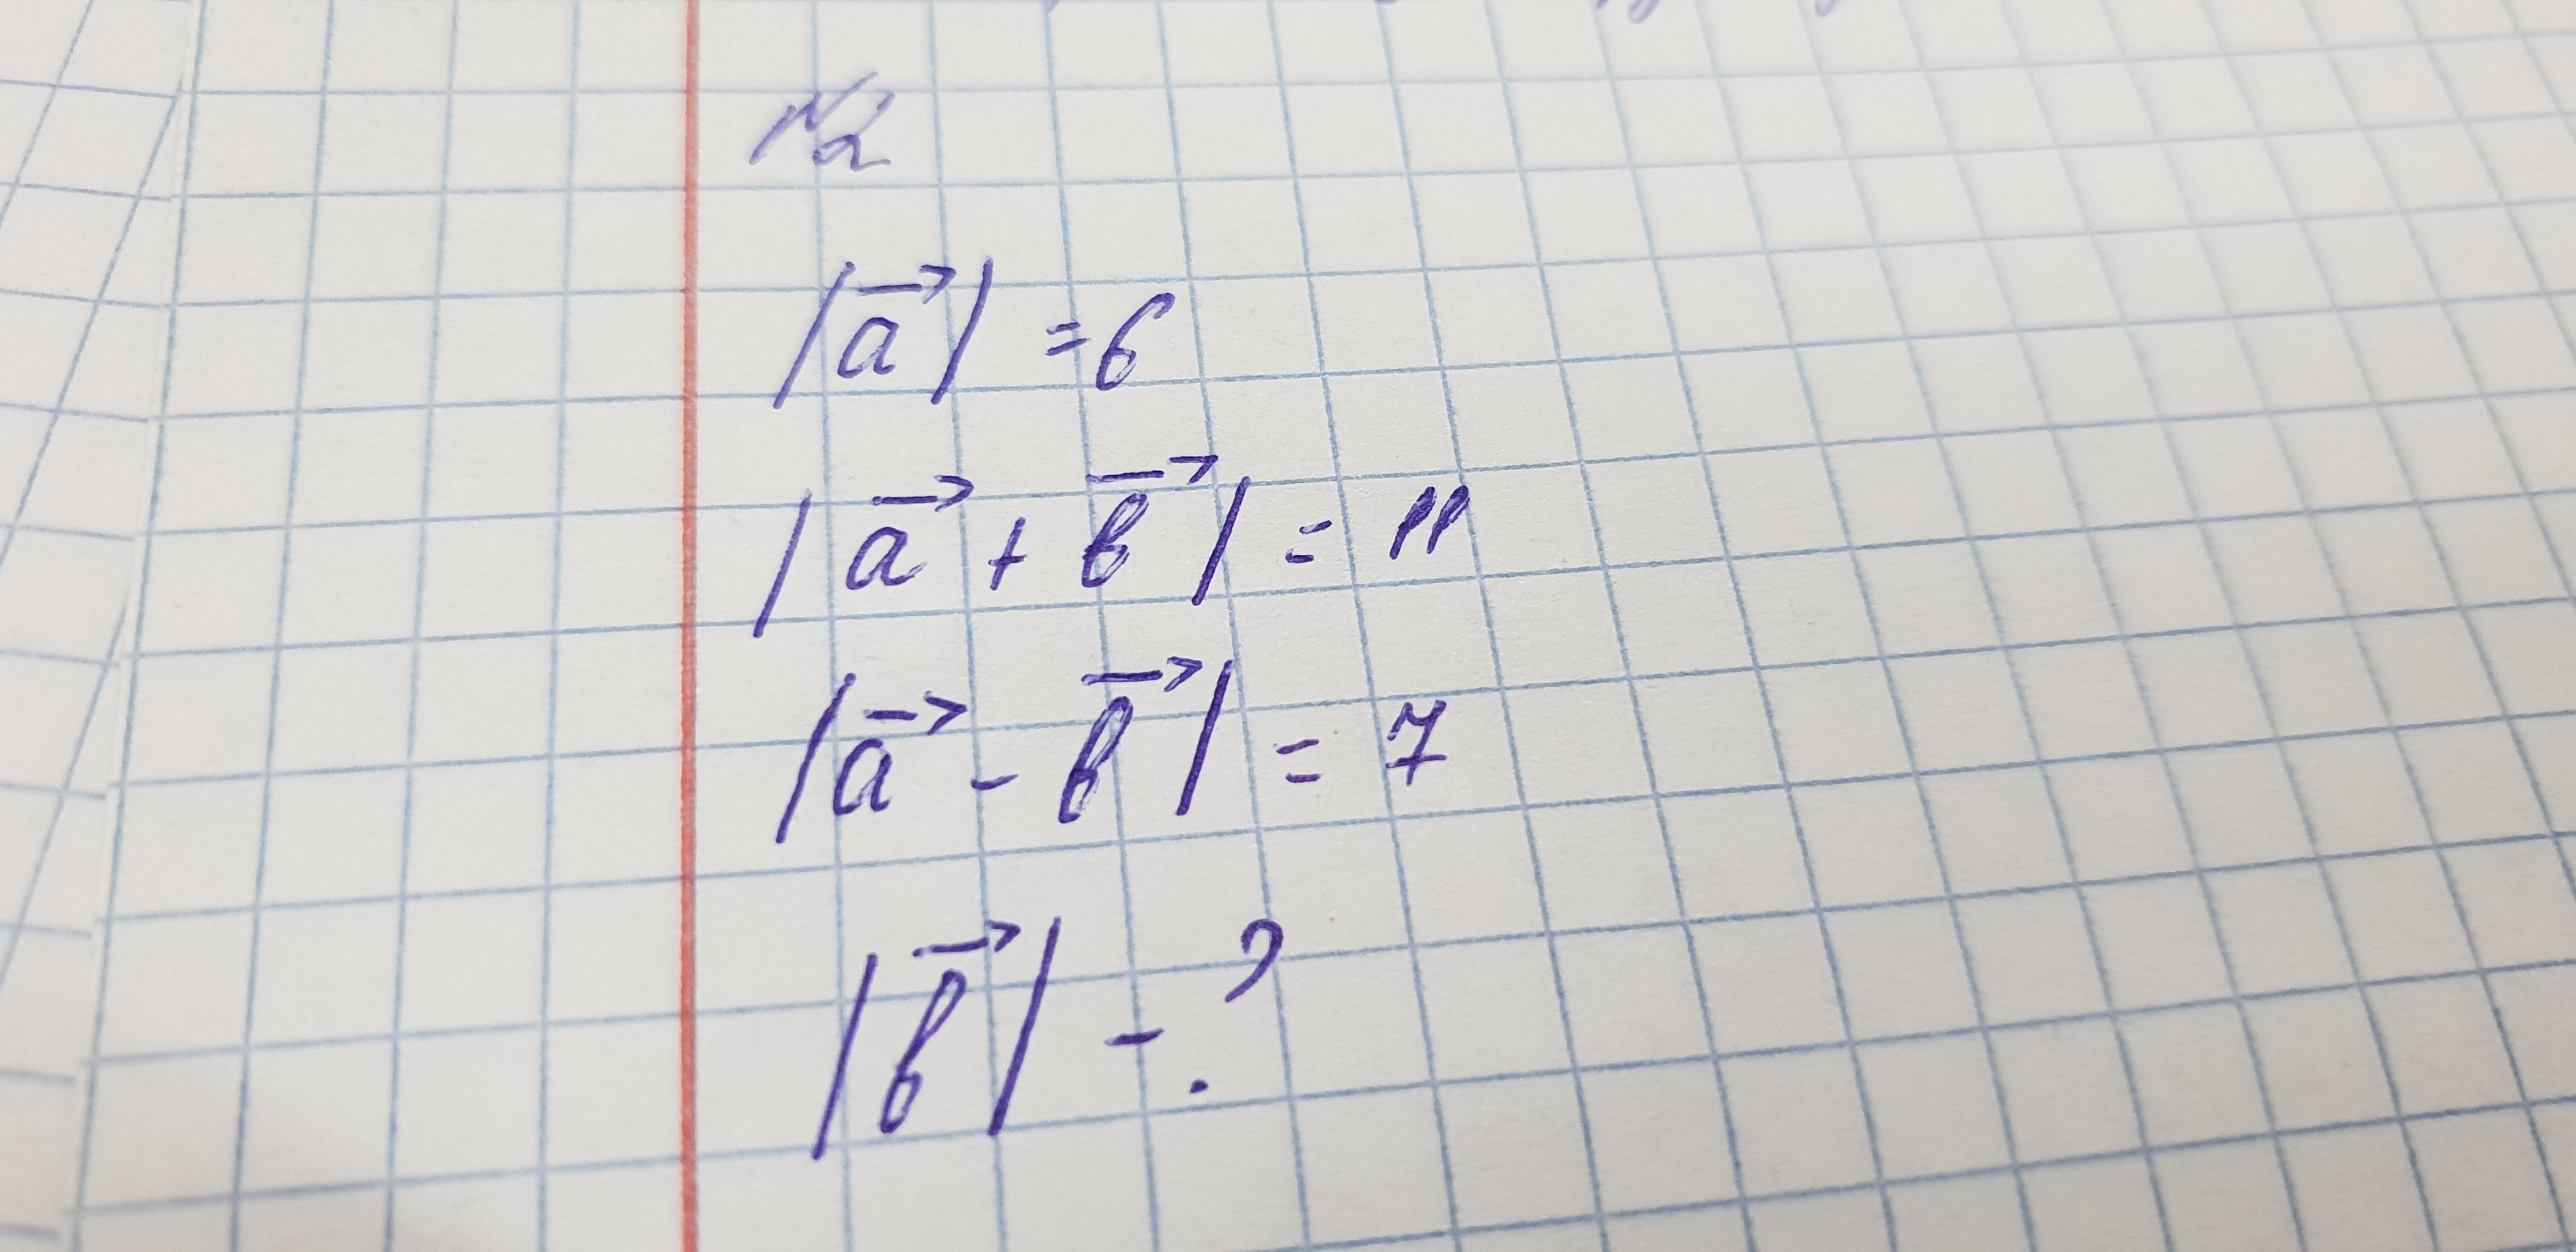 №2
|a⃗| = 6
|a⃗ + b⃗| = 11
|a⃗ - b⃗| = 7
|b⃗| - ?